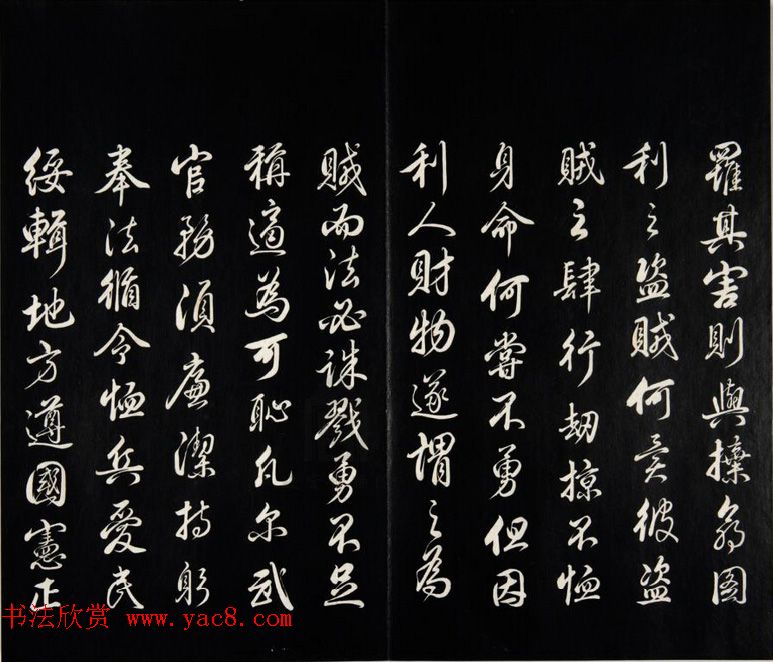 羅其害則與攘劵圖
利之盜賊何異彼盜
賊之肆行刼掠不恤
身命何嘗不勇但因
利人財物遂謂之為
賊而法必誅戮勇不足
稱適為可恥凡尔武
官務須廉潔持躬
奉法循令恤兵愛民
綏輯地方遵國憲正
书法欣赏 www.yac8.com